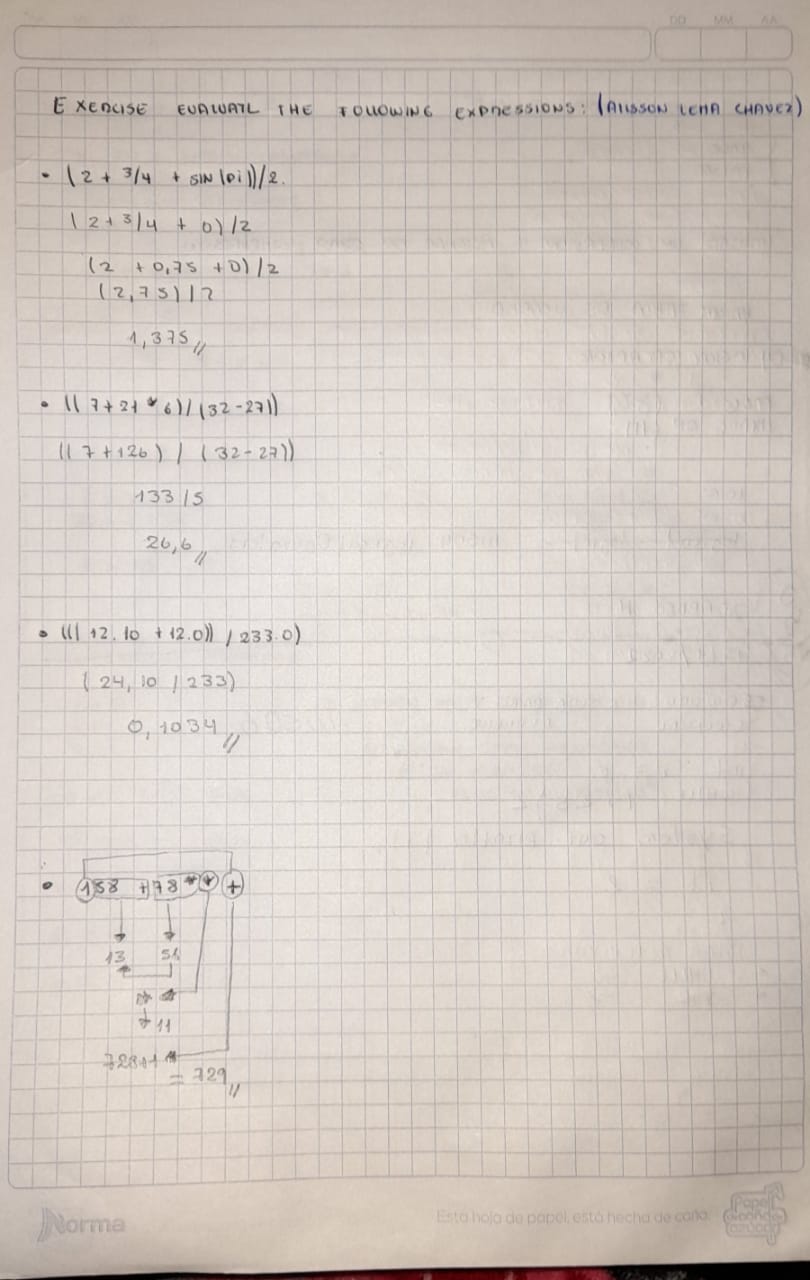 DD MM AA
EXERCISE EVALUATE THE FOLLOWING EXPRESSIONS: (ALISSON LEMA CHAVEZ)
• (2 + 3/4 + SIN(pi))/2.
(2 + 3/4 + 0)/2
(2 + 0,75 + 0)/2
(2,75)/2
1,375//
• ((7+21*6)/(32-27))
((7+126) / (32-27))
133/5
26,6//
• (((12.10 + 12.0)) / 233.0)
(24,10 / 233)
0,1034//
• 158 + 78 * * +
13 56
11
728+1
= 729//
Norma
Esta hoja de papel, está hecha de caña.